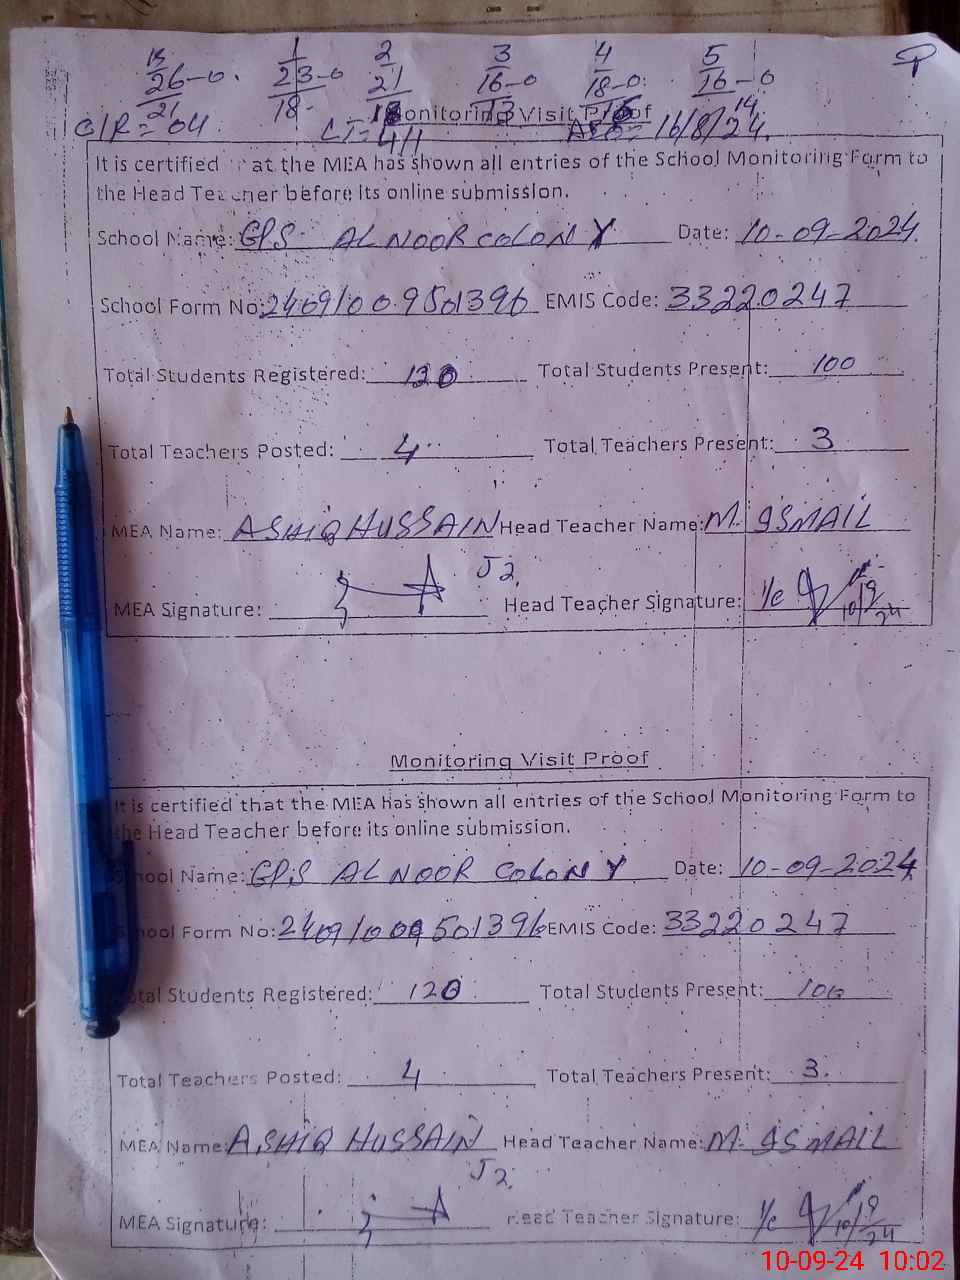 1 2 3 4 5
26-0 23-0 21 16-0 18-0 16-0
26 18 18 13 15 14
C/R = 04 CT= 4/1 16/8/24
Monitoring Visit Proof
It is certified that the MEA has shown all entries of the School Monitoring Form to
the Head Teacher before its online submission.
School Name: GPS AL NOOR COLONY Date: 10-09-2024
School Form No: 24091009501396 EMIS Code: 33220247
Total Students Registered: 120 Total Students Present: 100
Total Teachers Posted: 4 Total Teachers Present: 3
MEA Name: ASHIQ HUSSAIN Head Teacher Name: M. ISMAIL
J2
MEA Signature: Head Teacher Signature: I/C 10/9/24
Monitoring Visit Proof
It is certified that the MEA has shown all entries of the School Monitoring Form to
the Head Teacher before its online submission.
School Name: GPS AL NOOR COLONY Date: 10-09-2024
School Form No: 24091009501396 EMIS Code: 33220247
Total Students Registered: 120 Total Students Present: 100
Total Teachers Posted: 4 Total Teachers Present: 3.
MEA Name: ASHIQ HUSSAIN Head Teacher Name: M. ISMAIL
J2.
MEA Signature: Head Teacher Signature: I/C 10/9/24
10-09-24 10:02